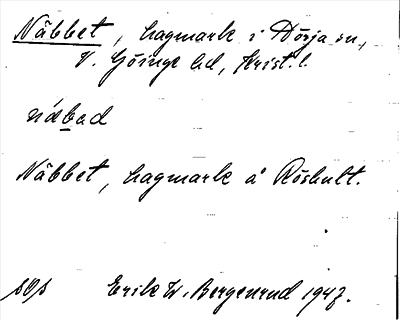 Näbbet, hagmark i Dörja sn,
V. Göinge hd, Krist. l.
nábad
Näbbet, hagmark å Röshult.
Erik W. Borgenrud 1947.